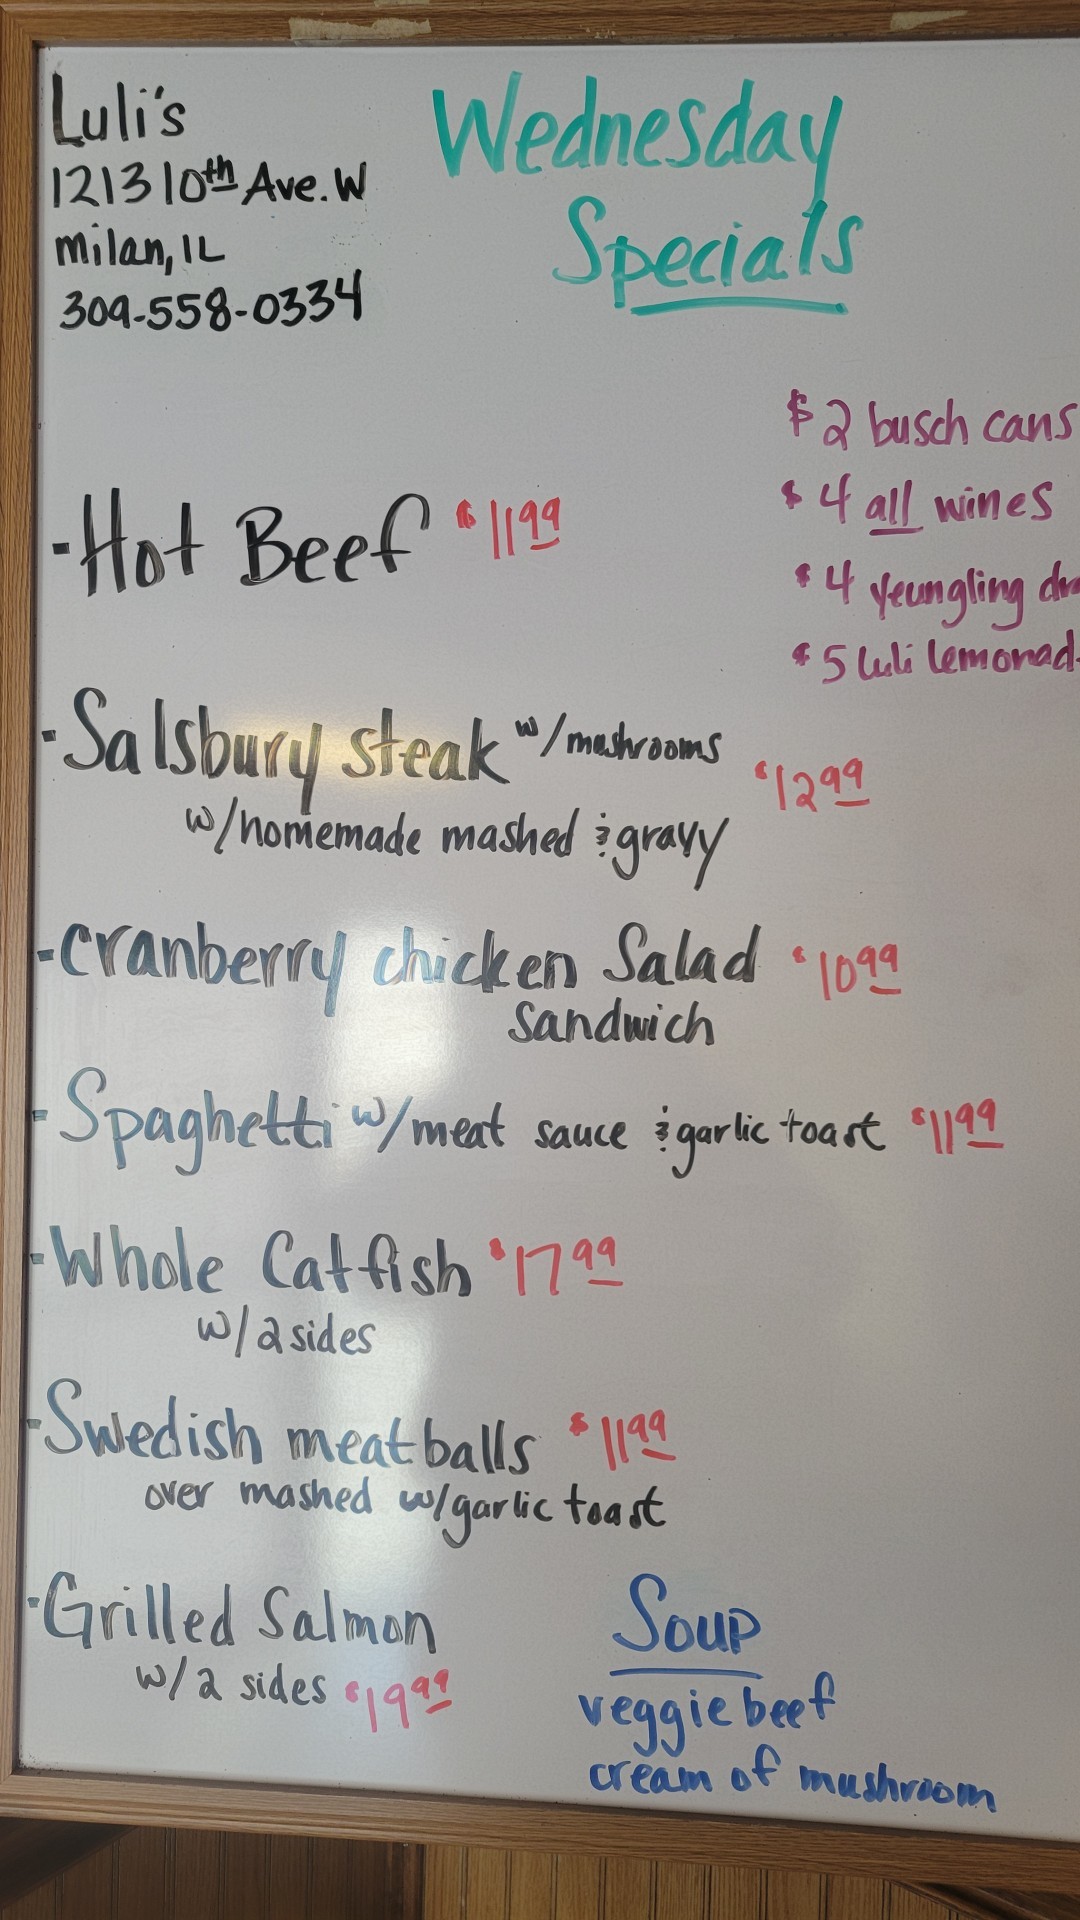 Luli's
1213 10th Ave. W
milan, IL
309-558-0334
Wednesday
Specials
$2 busch cans
$4 all wines
$4 Yeungling
$5 luli lemonad
- Hot Beef $11.99
- Salsbury steak w/mushrooms $12.99
w/homemade mashed & gravy
- cranberry chicken Salad $10.99
sandwich
- Spaghetti w/meat sauce & garlic toast $11.99
- Whole Catfish $17.99
w/2 sides
- Swedish meatballs $11.99
over mashed w/garlic toast
- Grilled Salmon
w/2 sides $19.99
Soup
veggie beef
cream of mushroom